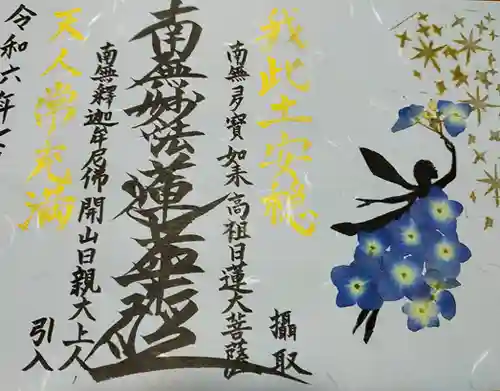 我此土安穏
南無多寳如来 高祖日蓮大菩薩
攝取
南無妙法蓮華経
南無釋迦牟尼佛 開山日親大上人
引入
天人常充満
令和六年